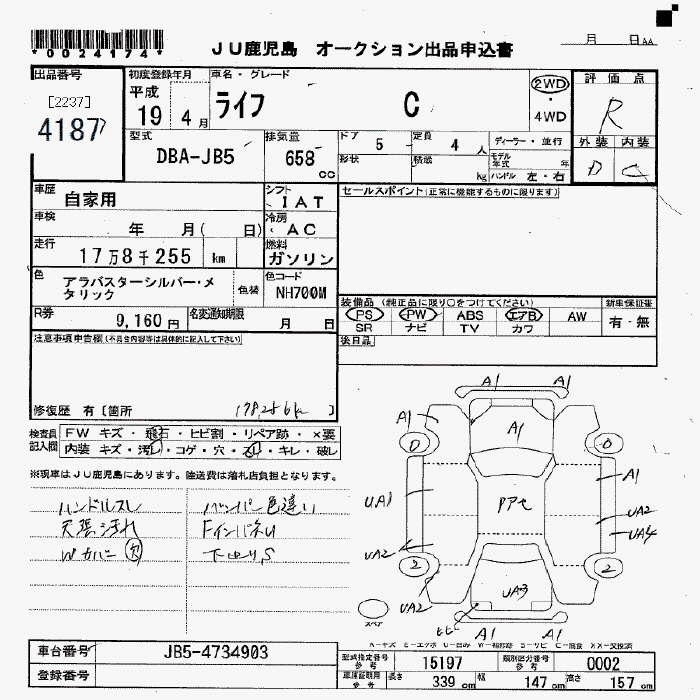 *0024174*
JU鹿児島 オークション出品申込書
月 日AA
出品番号
[2237]
4187
初度登録年月
平成
19 4 月
車名・グレード
ライフ C
2WD
・
4WD
評価点
R
外装 内装
D C
型式
DBA-JB5
排気量
658 cc
ドア 5 定員 4 人
形状 積載 kg
ディーラー・並行
モデル年式 年
ハンドル 左・右
車歴 自家用
シフト IAT
車検 年 月( 日)
冷房 AC
走行 17万8千255 km
燃料 ガソリン
色 アラバスターシルバー・メタリック
色替
色コード NH700M
R券 9,160 円
名変通知期限 月 日
セールスポイント(正常に機能するものに限ります)
装備品(純正品に限り○をつけてください)
新車保証書
PS PW ABS エアB AW
有・無
SR ナビ TV カワ
後日品
注意事項申告欄(不具合内容等は具体的に記入して下さい)
修復歴 有[箇所 178,256 km ]
検査員記入欄
FW キズ・飛石・ヒビ割・リペア跡・×要
内装 キズ・汚れ・コゲ・穴・スレ・キレ・破レ
※現車はJU鹿児島にあります。陸送費は落札店負担となります。
ハンドルスレ
天張汚れ
Wカバー 欠
バンパー色違い
FインパネU
下回りS
A1 A1
A1 A1
D D
A1
UA1 Pアセ UA2
UA4
UA2
2 2
UA2 UA3
ヒビ
A1 A1
スペア
A=キズ E=エクボ U=凹み W=補修跡 S=サビ C=腐食 XX=交換済
車台番号 JB5-4734903
登録番号
型式指定番号 参考 15197
類別区分番号 参考 0002
車庫証明用 参考 長さ 339 cm 幅 147 cm 高さ 157 cm